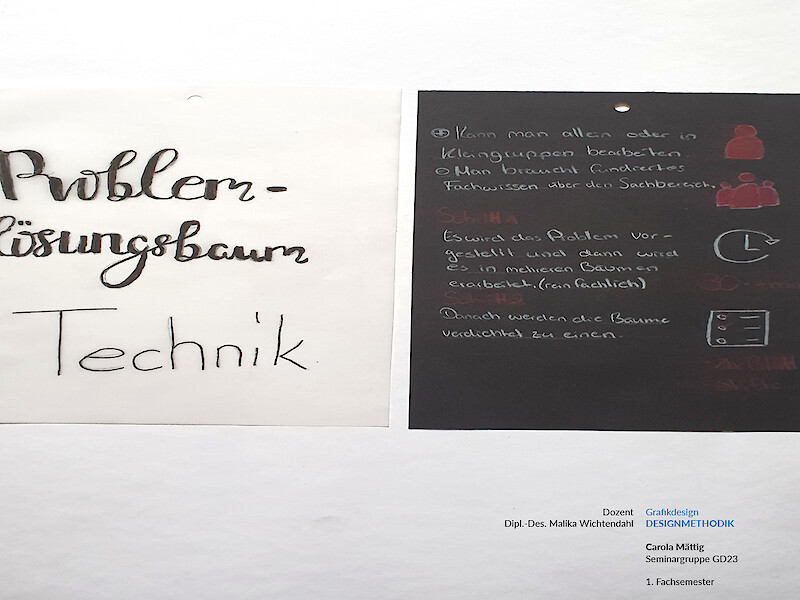 Problem-
lösungsbaum
Technik
Kann man allein oder in
Kleingruppen bearbeiten.
Man braucht fundiertes
Fachwissen über den Sachbereich.
Schritt 1
Es wird das Problem vor-
gestellt und dann wird
es in mehreren Bäumen
erarbeitet. (rein fachlich)
Schritt 2
Danach werden die Bäume
verdichtet zu einen.
30
Dozent
Dipl.-Des. Malika Wichtendahl
Grafikdesign
DESIGNMETHODIK
Carola Mättig
Seminargruppe GD23
1. Fachsemester